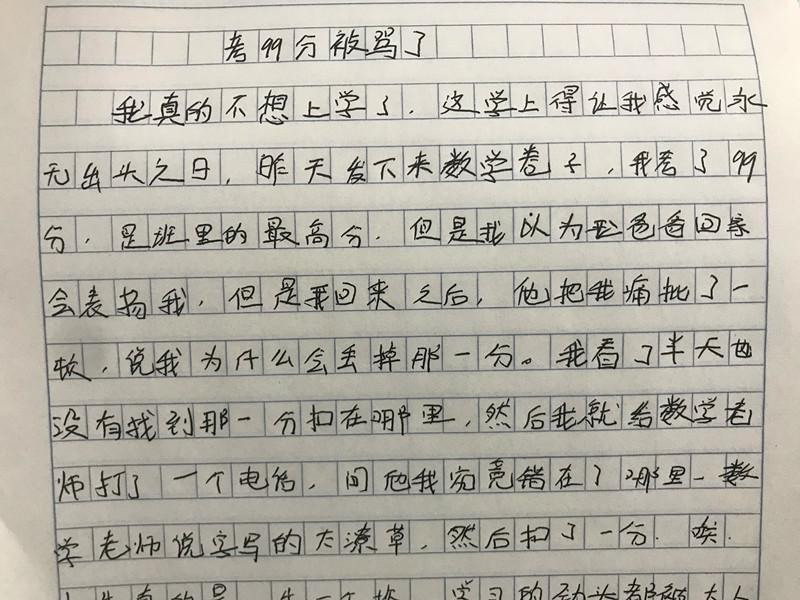 考99分被骂了
我真的不想上学了，这学上得让我感觉永
无出头之日，昨天发下来数学卷子，我考了99
分，是班里的最高分，但是我以为我爸爸回家
会表扬我，但是我回来之后，他把我痛批了一
顿，说我为什么会丢掉那一分。我看了半天也
没有找到那一分扣在哪里，然后我就给数学老
师打了一个电话，问他我究竟错在了哪里，数
学老师说字写的太潦草，然后扣了一分，唉，
学习的劲头都被大人